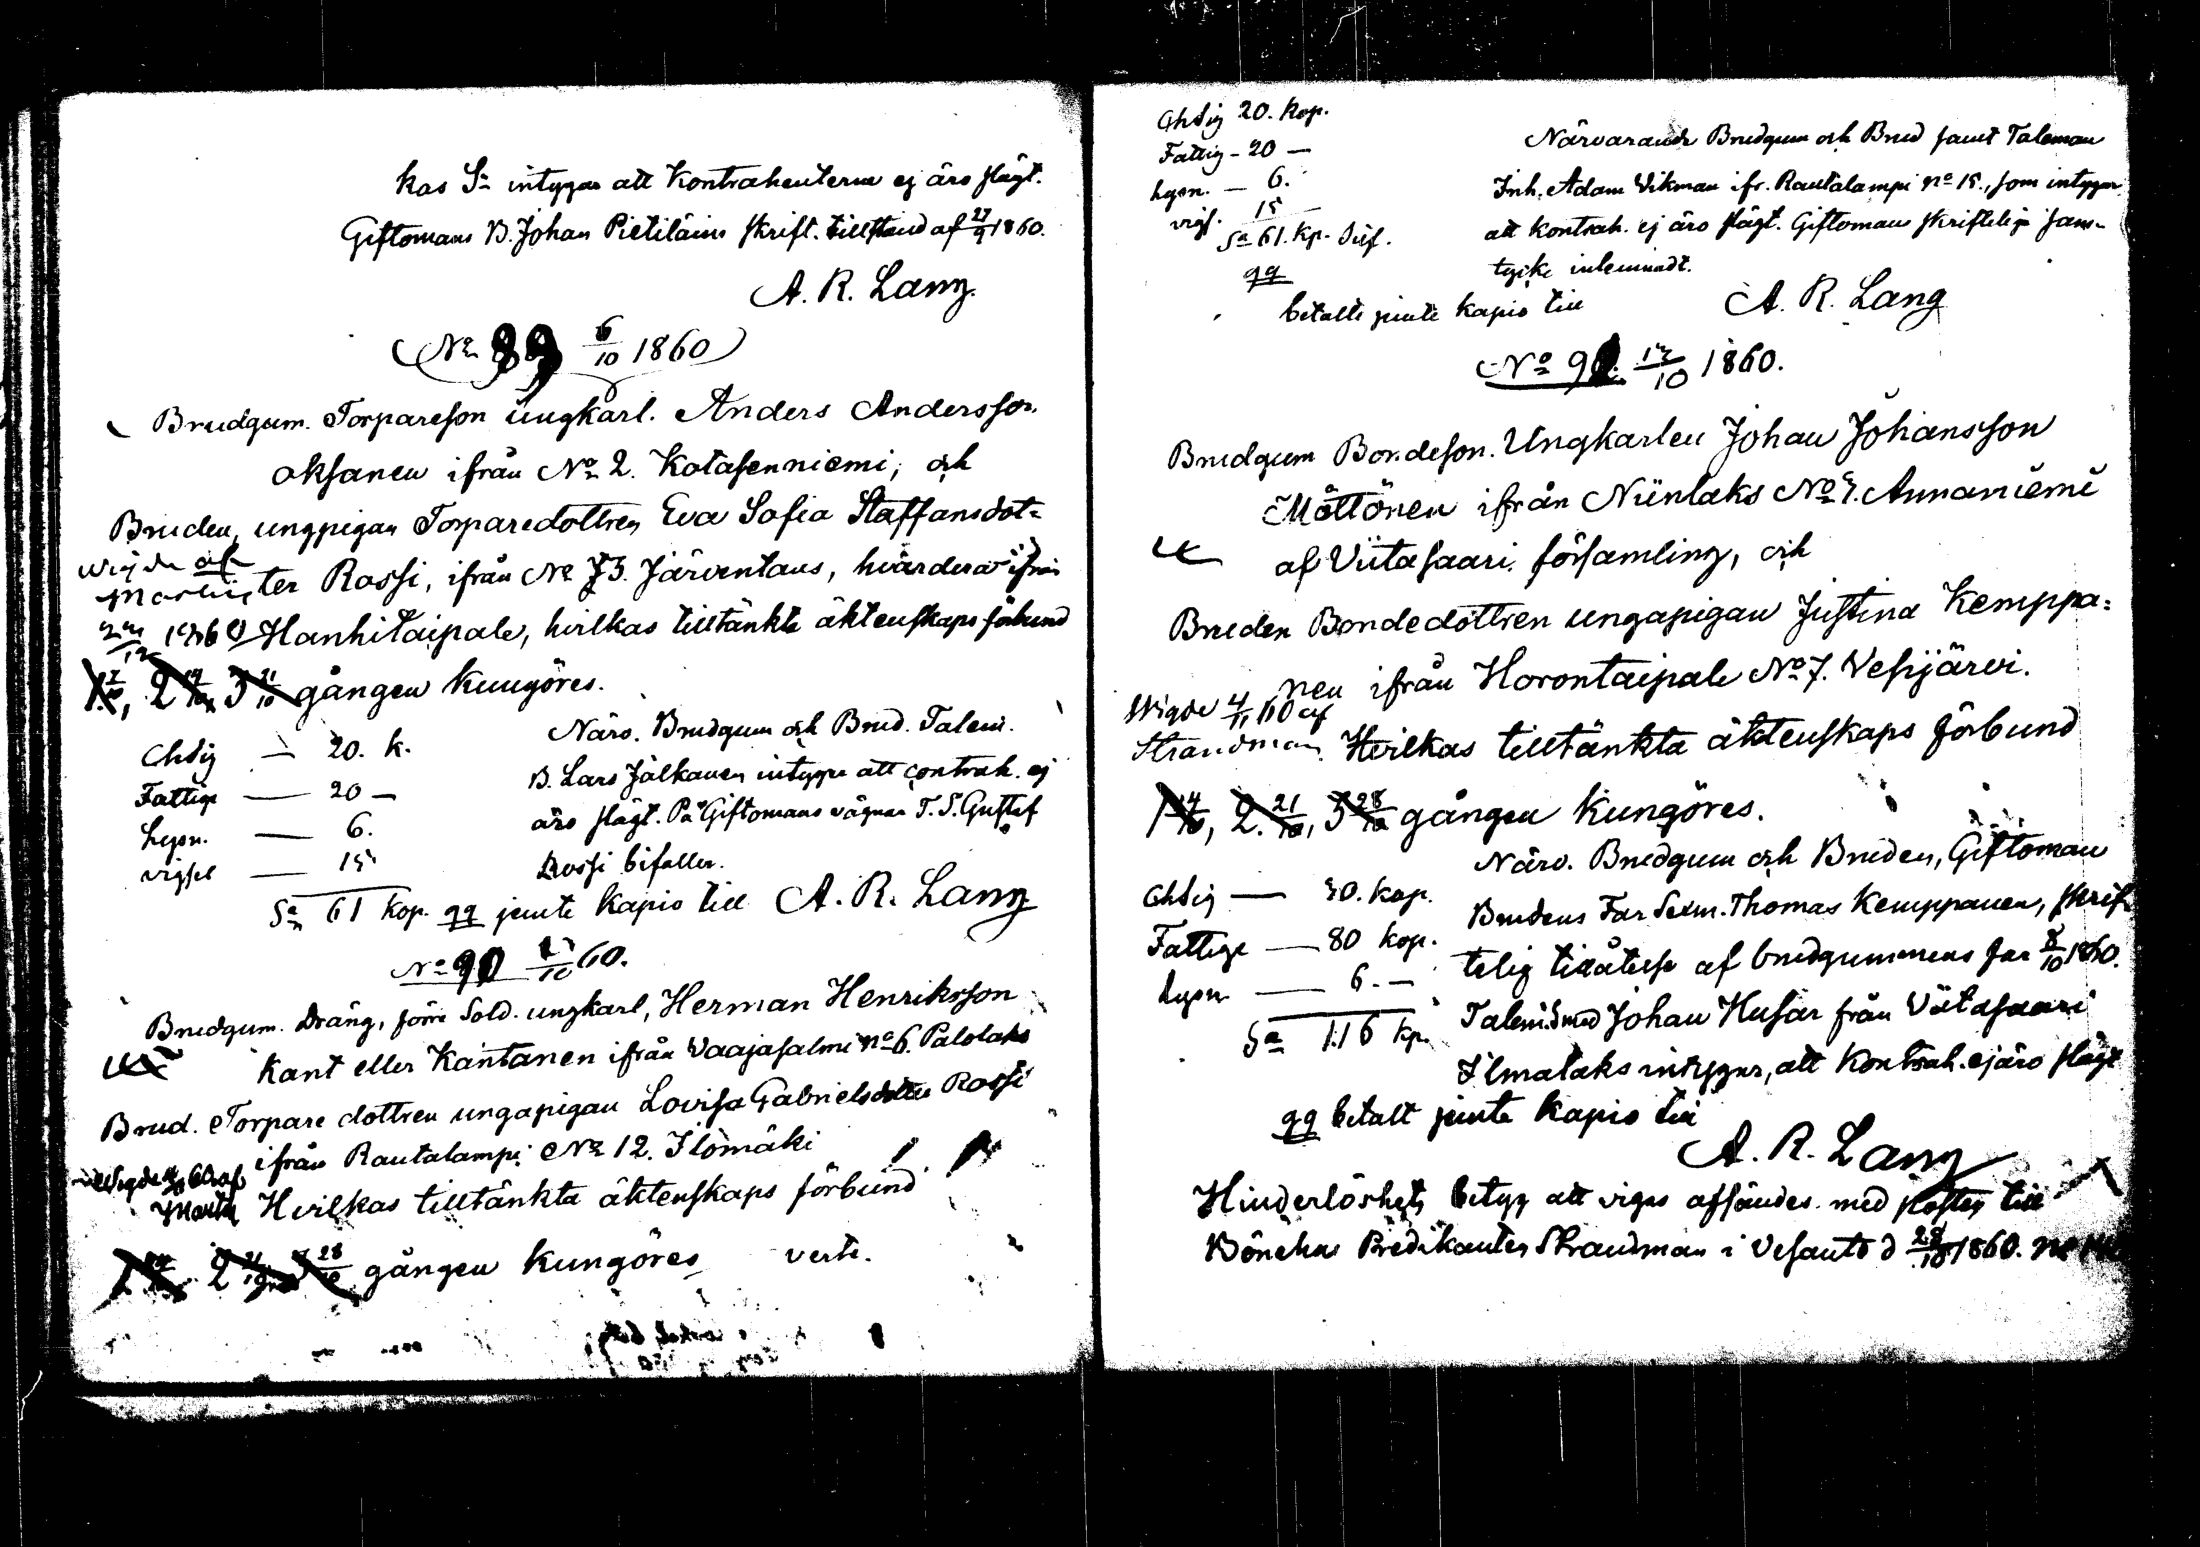 kas Sn intygar att Kontrahenterna ej äro slägt.
Giftomans B. Johan Pietiläins skrift. tillstånd af 27/9 1860.
A. R. Lang.
No 89 6/10 1860
Brudgum. Torpareson ungkarl. Anders Andersson
Oksanen ifrån No 2. Kotasenniemi, och
Bruden, ungpigan Torparedottren Eva Sofia Staffansdot=
ter Rossi, ifrån No 73. Järventaus, hvardera ifrån
Wigde af
1860 Hanhitaipale, hvilkas tilltänkta äktenskaps förbund
1 7/10, 2 14/10 3 21/10 gången kungöres.
Chsig — 20. k.
Fattige — 20 —
Lysn. — 6.
vigsel — 15
Sa 61 kop. qq jemte kapio till A. R. Lang
Närv. Brudgum och Brud. Talem.
B. Lars Jalkanen intygar att contrah. ej
äro slägt. På Giftomans vägnar T. S. Gustaf
Rossi bifaller.
No 90 /10 60.
Brudgum. Dräng, förre Sold. ungkarl, Herman Henriksson
Kant eller Kantanen ifrån Vaajasalmi no 6. Palolaks
Brud. Torpare dottren ungapigan Lovisa Gabrielsdotter Rossi
ifrån Rautalampi No 12. Ilomäki
Wigde 60 af
Hvilkas tilltänkta äktenskaps förbund
1 14/10 2 21/10 3 28/10 gången kungöres verte.
Chsig 20. kop.
Fattig - 20 —
Lysn. — 6.
vigs. 15
Sa 61. kp. Silf.
qq
betalte jemte kapio till
Närvarande Brudgum och Brud samt Taleman
Inh. Adam Vikman ifr. Rautalampi no 15., som intygar
att kontrah. ej äro slägt. Giftomans skriftelige sam-
tycke inlemnadt.
A. R. Lang
No 91. /10 1860.
Brudgum Bondeson. Ungkarlen Johan Johansson
Möttönen ifrån Niinlaks No . Annaniemi
af Viitasaari församling, och
Bruden Bondedottren ungapigan Justina Kemppa=
nen ifrån Horontaipale No 7. Vesijärvi.
Wigde 4/11 60 af
Strandman.
Hvilkas tilltänkta äktenskaps förbund
1 14/10, 2. 21/10, 3 28/10 gången kungöres.
Chsig — 30. kop.
Fattige — 80 kop.
Lysn — 6. —
Sa 1.16 kp.
Närv. Brudgum och Bruden, Giftoman
Brudens Far Sexm. Thomas Kemppanen, skrif
telig tillåtelse af brudgummens far 8/10 1860.
Talem. Smed Johan Husar från Viitasaari
Ilmolaks intygar, att Kontrah. ej äro slägt
qq betalt jemte kapio till
A. R. Lang
Hinderlöshets betyg att vigas afsändes med Posten till
Bönehus Predikanten Strandman i Vesanto d 28/10 1860.